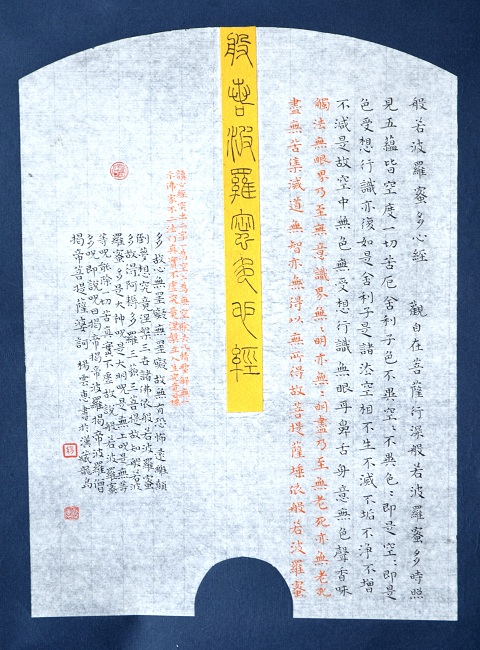 般若波羅蜜多心經 觀自在菩薩行深般若波羅蜜多時照
見五蘊皆空度一切苦厄舍利子色不異空:不異色:即是空:即是
色受想行識亦復如是舍利子是諸法空相不生不滅不垢不淨不增
不減是故空中無色無受想行識無眼耳鼻舌身意無色聲香味
觸法無眼界乃至無意識界無無明亦無:明盡乃至無老死亦無老死
盡無苦集滅道無智亦無得以無所得故菩提薩埵依般若波羅蜜
般若波羅蜜多心經
讀心經突出二字
佛家不二法門真實不虛究竟涅槃
多故心無罣礙無罣礙故無有恐怖遠離顛
倒夢想究竟涅槃三世諸佛依般若波羅蜜
多故得阿耨多羅三藐三菩提故知般若波
羅蜜多是大神呪是大明呪是無上呪是無等
等呪能除一切苦真實不虛故說般若波羅蜜
多呪即說呪曰揭帝揭帝波羅揭帝波羅僧
揭帝菩提薩婆訶 楊雲惠書於漢城